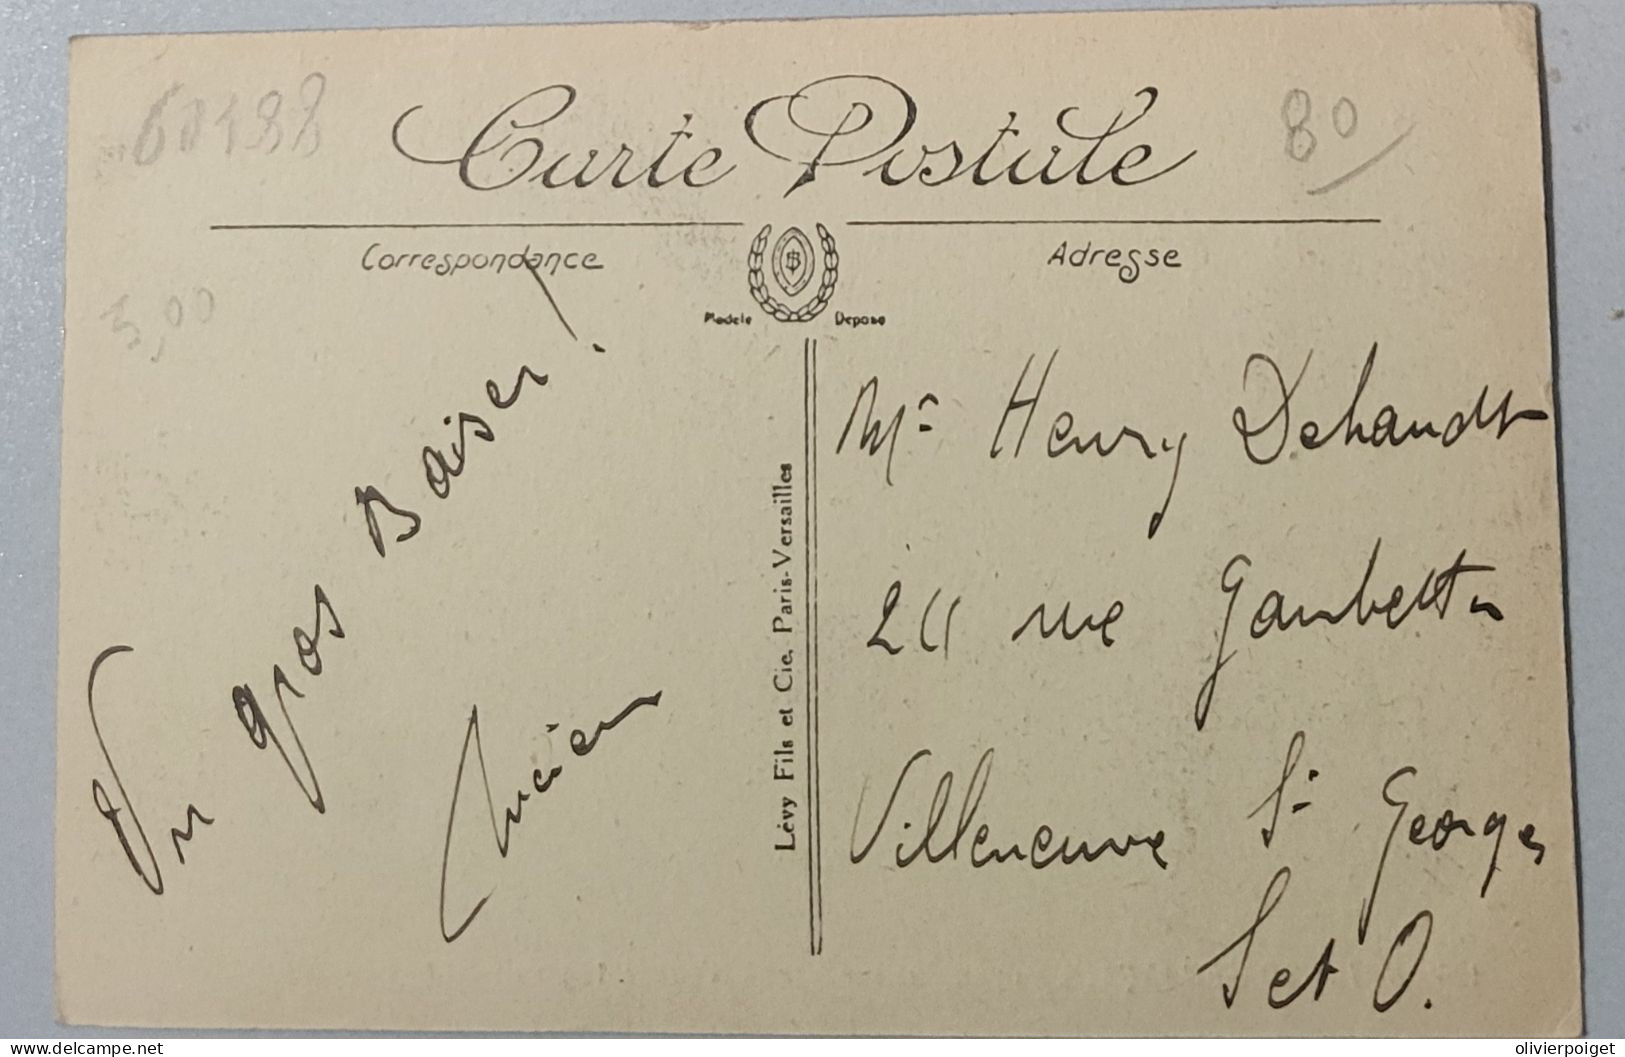 60188
80
Carte Postale
Correspondance
Adresse
Modèle Déposé
5,00
Un gros Baiser !
Lucien
Lévy Fils et Cie, Paris-Versailles
Mr Henry Dehandt
211 rue Gambetta
Villeneuve St Georges
S et O.
www.delcampe.net
olivierpoiget